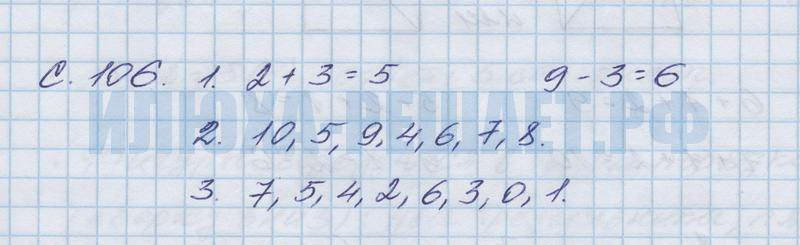 С. 106. 1. 2 + 3 = 5 9 - 3 = 6
ИЛЮХА-РЕШАЕТ.РФ
2. 10, 5, 9, 4, 6, 7, 8.
3. 7, 5, 4, 2, 6, 3, 0, 1.